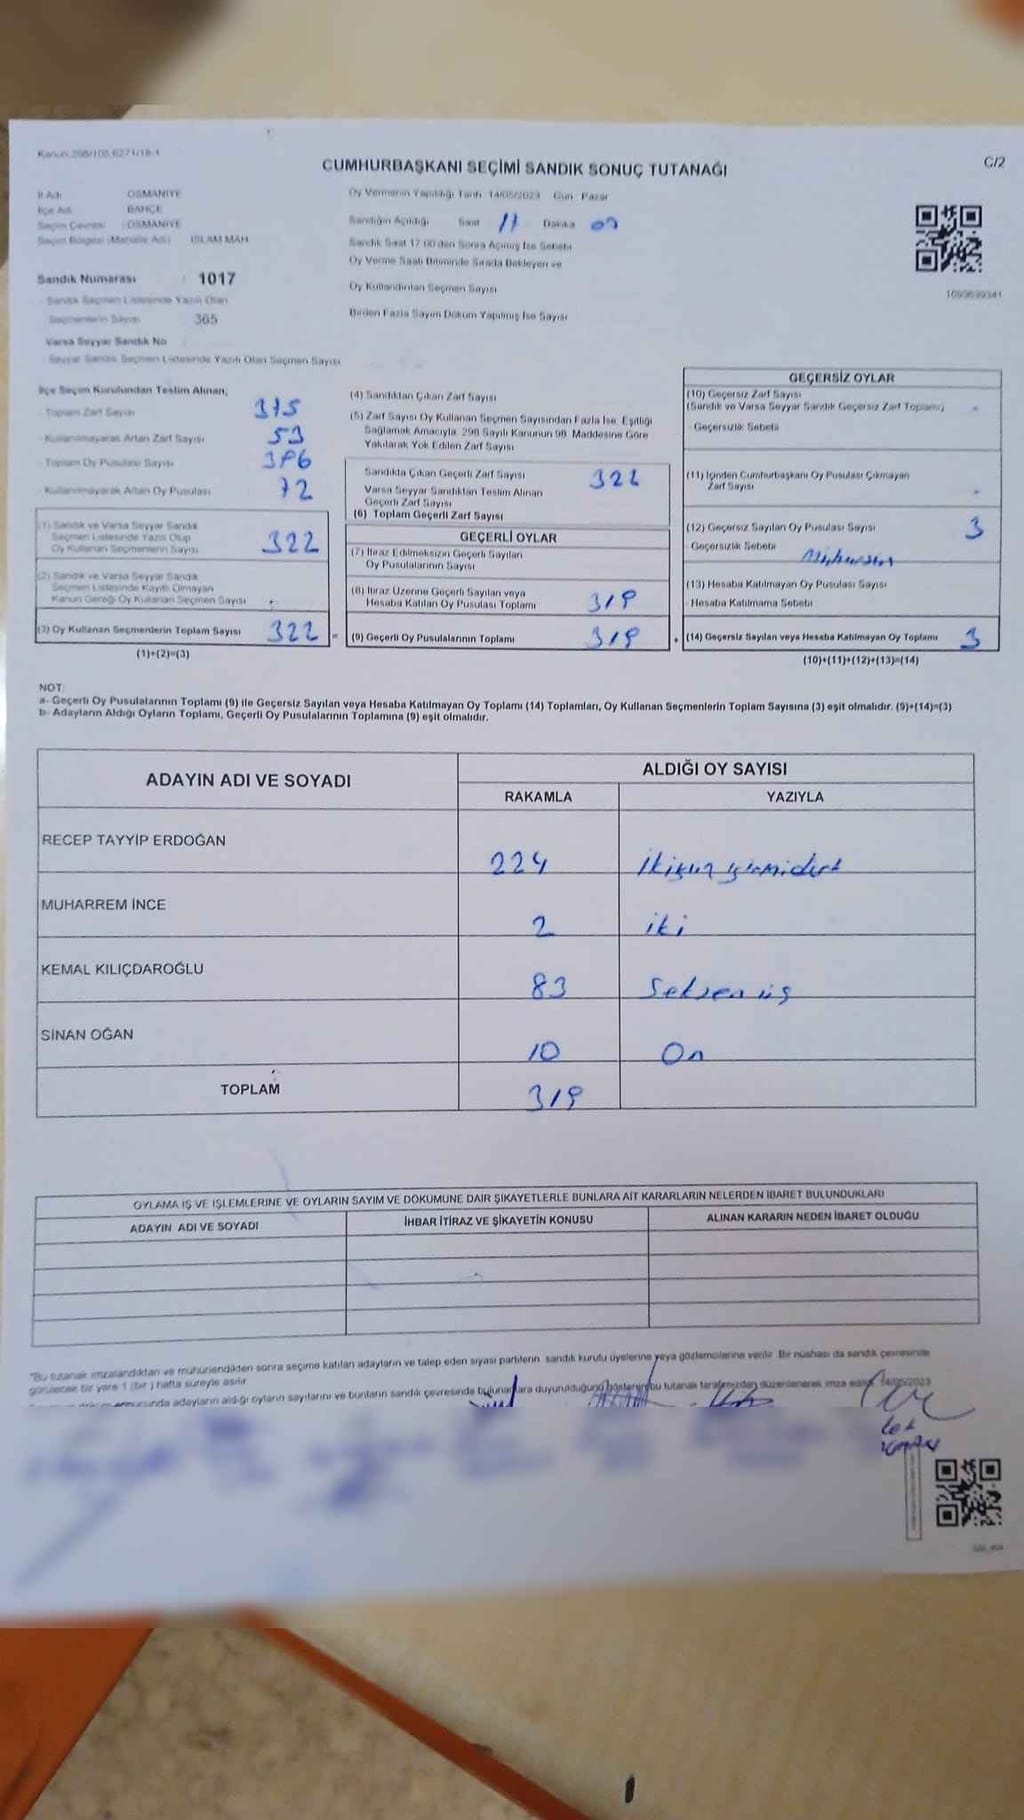 Kanun:298/105,6271/18-1
C/2
CUMHURBAŞKANI SEÇİMİ SANDIK SONUÇ TUTANAĞI
İl Adı OSMANİYE
İlçe Adı BAHÇE
Seçim Çevresi OSMANİYE
Seçim Bölgesi (Mahalle Adı) İSLAM MAH.
Sandık Numarası : 1017
Sandık Seçmen Listesinde Yazılı Olan
Seçmenlerin Sayısı 365
Varsa Seyyar Sandık No
Seyyar Sandık Seçmen Listesinde Yazılı Olan Seçmen Sayısı
Oy Vermenin Yapıldığı Tarih 14/05/2023 Gün Pazar
Sandığın Açıldığı Saat 17 Dakika
Sandık Saat 17:00'den Sonra Açılmış İse Sebebi
Oy Verme Saati Bitiminde Sırada Bekleyen ve
Oy Kullandırılan Seçmen Sayısı
Birden Fazla Sayım Döküm Yapılmış İse Sayısı
1093639341
İlçe Seçim Kurulundan Teslim Alınan;
Toplam Zarf Sayısı 375
Kullanılmayarak Artan Zarf Sayısı 53
Toplam Oy Pusulası Sayısı 396
Kullanılmayarak Artan Oy Pusulası 72
(1) Sandık ve Varsa Seyyar Sandık
Seçmen Listesinde Yazılı Olup
Oy Kullanan Seçmenlerin Sayısı 322
(2) Sandık ve Varsa Seyyar Sandık
Seçmen Listesinde Kayıtlı Olmayan
Kanun Gereği Oy Kullanan Seçmen Sayısı
(3) Oy Kullanan Seçmenlerin Toplam Sayısı 322 =
(1)+(2)=(3)
(4) Sandıktan Çıkan Zarf Sayısı
(5) Zarf Sayısı Oy Kullanan Seçmen Sayısından Fazla İse, Eşitliği
Sağlamak Amacıyla, 298 Sayılı Kanunun 98. Maddesine Göre
Yakılarak Yok Edilen Zarf Sayısı
Sandıkta Çıkan Geçerli Zarf Sayısı 322
Varsa Seyyar Sandıktan Teslim Alınan
Geçerli Zarf Sayısı
(6) Toplam Geçerli Zarf Sayısı
GEÇERLİ OYLAR
(7) İtiraz Edilmeksizin Geçerli Sayılan
Oy Pusulalarının Sayısı
(8) İtiraz Üzerine Geçerli Sayılan veya
Hesaba Katılan Oy Pusulası Toplamı 319
(9) Geçerli Oy Pusulalarının Toplamı 319 +
GEÇERSİZ OYLAR
(10) Geçersiz Zarf Sayısı
(Sandık ve Varsa Seyyar Sandık Geçersiz Zarf Toplamı)
- Geçersizlik Sebebi
(11) İçinden Cumhurbaşkanı Oy Pusulası Çıkmayan
Zarf Sayısı
(12) Geçersiz Sayılan Oy Pusulası Sayısı 3
- Geçersizlik Sebebi Mühürsüz
(13) Hesaba Katılmayan Oy Pusulası Sayısı
- Hesaba Katılmama Sebebi
(14) Geçersiz Sayılan veya Hesaba Katılmayan Oy Toplamı 3
(10)+(11)+(12)+(13)=(14)
NOT:
a- Geçerli Oy Pusulalarının Toplamı (9) ile Geçersiz Sayılan veya Hesaba Katılmayan Oy Toplamı (14) Toplamları, Oy Kullanan Seçmenlerin Toplam Sayısına (3) eşit olmalıdır. (9)+(14)=(3)
b- Adayların Aldığı Oyların Toplamı, Geçerli Oy Pusulalarının Toplamına (9) eşit olmalıdır.
ADAYIN ADI VE SOYADI
ALDIĞI OY SAYISI
RAKAMLA YAZIYLA
RECEP TAYYİP ERDOĞAN 224 ikiyüz yirmidört
MUHARREM İNCE 2 iki
KEMAL KILIÇDAROĞLU 83 Seksen üç
SİNAN OĞAN 10 On
TOPLAM 319
OYLAMA İŞ VE İŞLEMLERİNE VE OYLARIN SAYIM VE DÖKÜMÜNE DAİR ŞİKAYETLERLE BUNLARA AİT KARARLARIN NELERDEN İBARET BULUNDUKLARI
ADAYIN ADI VE SOYADI İHBAR İTİRAZ VE ŞİKAYETİN KONUSU ALINAN KARARIN NEDEN İBARET OLDUĞU
*Bu tutanak imzalandıktan ve mühürlendikten sonra seçime katılan adayların ve talep eden siyasi partilerin sandık kurulu üyelerine veya gözlemcilerine verilir. Bir nüshası da sandık çevresinde
görülecek bir yere 1 (bir) hafta süreyle asılır.
adayların aldığı oyların sayılarını ve bunların sandık çevresinde bulunanlara duyurulduğunu gösteren bu tutanak tarafımızdan düzenlenerek imza edildi. 14/05/2023